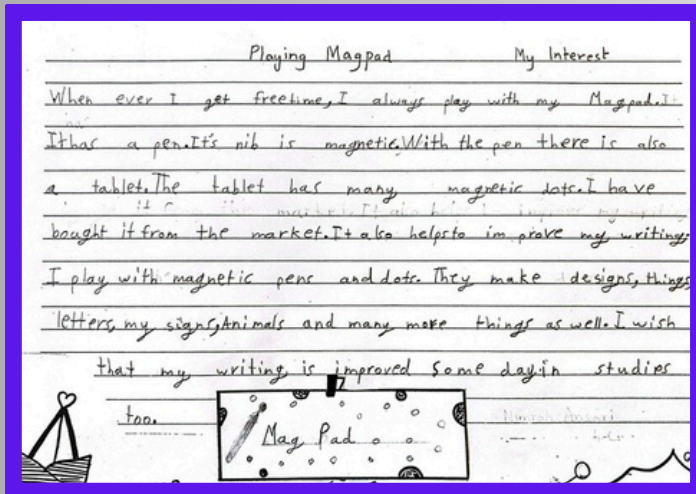 Playing Magpad My Interest
When ever I get freetime, I always play with my Magpad. It
Ithas a pen. It's nib is magnetic. With the pen there is also
a tablet. The tablet has many magnetic dots. I have
bought it from the market. It also helpsto im prove my writing.
I play with magnetic pens and dots. They make designs, things,
letters, my signs, Animals and many more things as well. I wish
that my writing is improved Some day. in studies
too.
Mag Pad